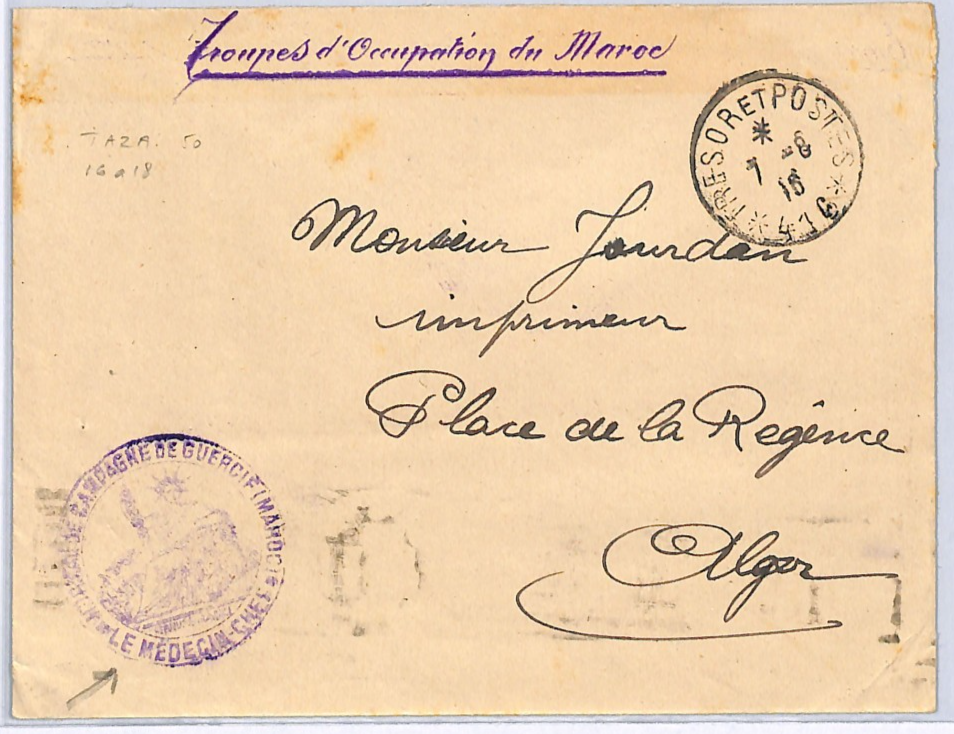 Troupes d'Occupation du Maroc
TRESOR ET POSTES * 414 *
* 7 -8 16
TAZA. 50
16 a 18
Monsieur Jourdan
imprimeur
Place de la Régence
Alger
DE CAMPAGNE DE GUERCIF (MAROC)
LE MÉDECIN-CHEF